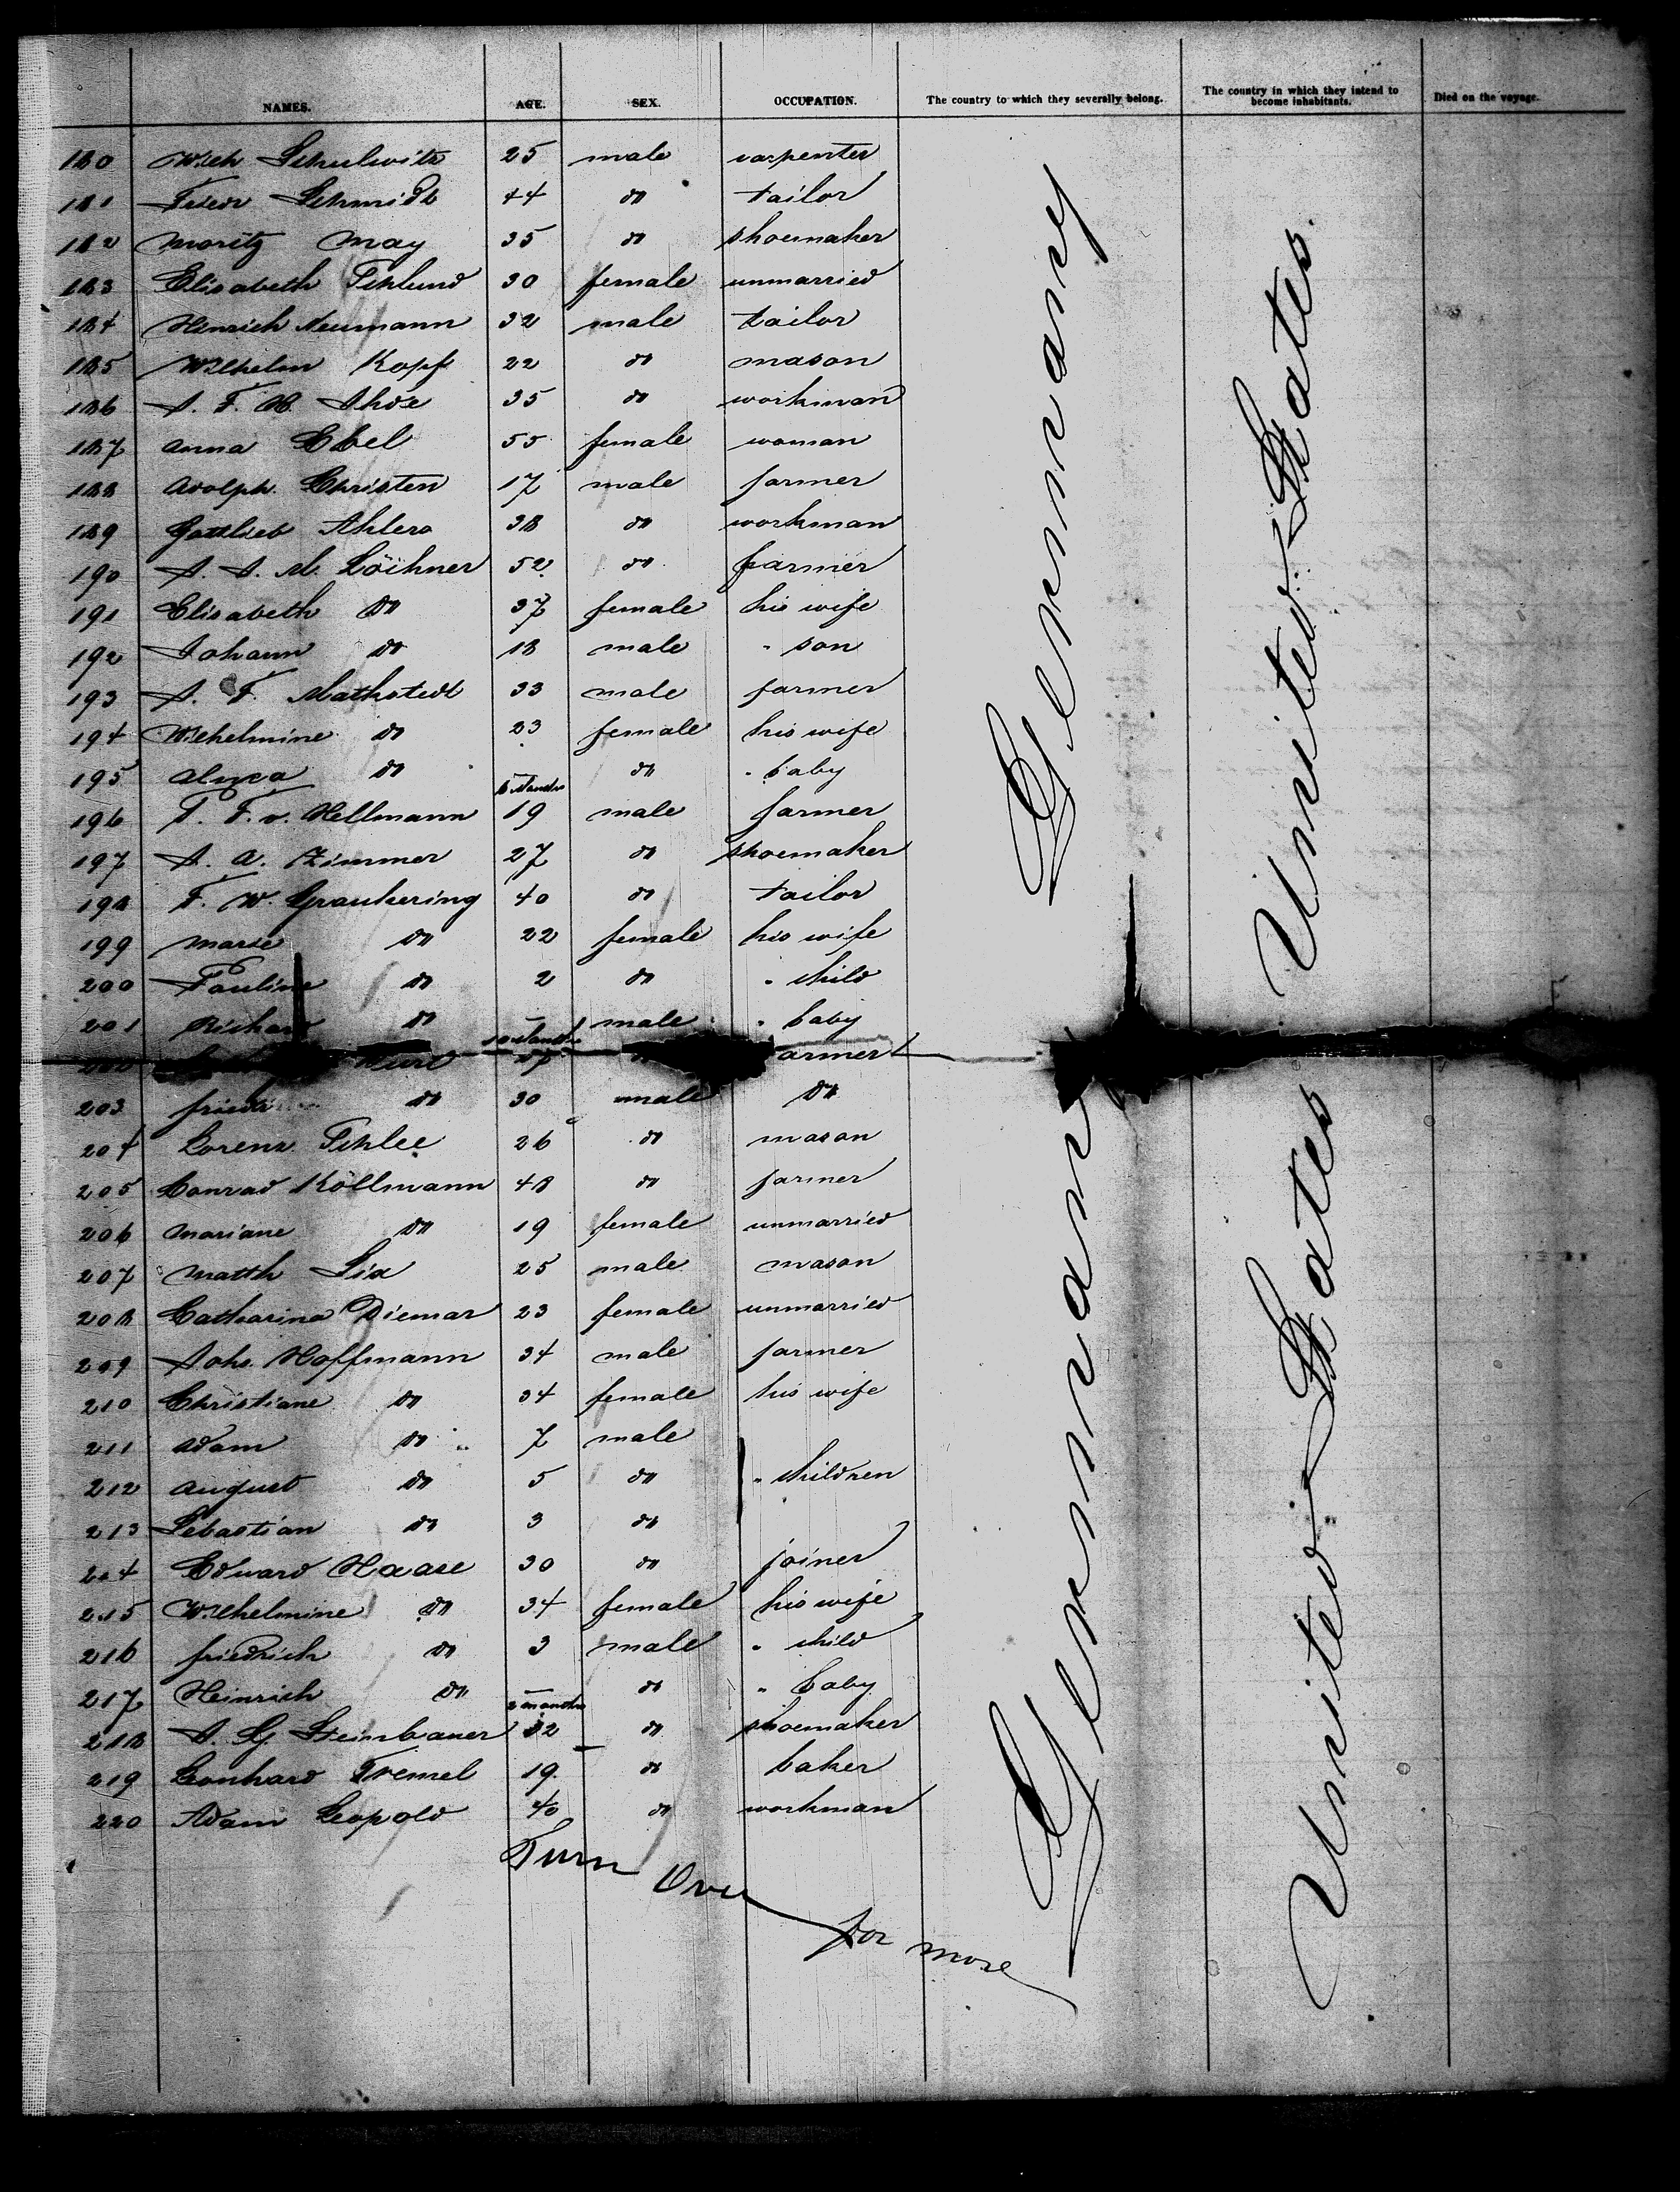 NAMES. AGE. SEX. OCCUPATION. The country to which they severally belong. The country in which they intend to become inhabitants. Died on the voyage.
180 Wilh Schulwitz 25 male carpenter
181 Friedr Schmidt 44 do tailor
182 Moritz May 35 do shoemaker
183 Elisabeth 30 female unmarried
184 Hinrich Neumann 32 male tailor
185 Wilhelm Kopf 22 do mason
186 J. F. H. 35 do workman
187 Anna Ebel 55 female woman
188 Adolph Christen 17 male farmer
189 Gottlieb Ahlers 38 do workman
190 J. J. M. Löchner 52 do farmer
191 Elisabeth do 37 female his wife
192 Johann do 18 male " son
193 J. F. Mathstedt 33 male farmer
194 Wilhelmine do 23 female his wife
195 do 6 Months do " baby
196 P. F. v. Hellmann 19 male farmer
197 J. A. Zimmer 27 do shoemaker
198 F. W. 40 do tailor
199 Marie do 22 female his wife
200 Pauline do 2 do " child
201 Richard do 10 Months male " baby
202 armer
203 friedr do 30 male do
204 Lorenz 26 do mason
205 Conrad Köllmann 48 do farmer
206 Mariane do 19 female unmarried
207 Matth Six 25 male mason
208 Catharina Diemar 23 female unmarried
209 Johs. Hoffmann 34 male farmer
210 Christiane do 34 female his wife
211 Adam do 7 male
212 August do 5 do " children
213 Sebastian do 3 do
214 Edward Haase 30 do joiner
215 Wilhelmine do 34 female his wife
216 friedrich do 3 male " child
217 Heinrich do 2 months do " baby
218 J. G. Steinbauer 32 do shoemaker
219 Leonhard Tremel 19 do baker
220 Adam Leopold 40 do workman
Germany
United States.
Germany
United States
Turn Over for more